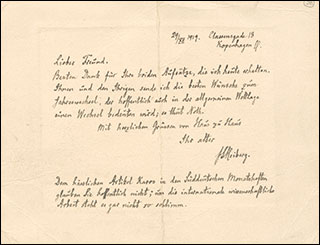 29/XII 1919. Classensgade 13
Kopenhagen Ø.
Lieber Freund.
Besten Dank für Ihre beiden Aufsätze, die ich heute erhalten.
Ihnen und den Ihrigen sende ich die besten Wünsche zum
Jahreswechsel, der hoffentlich auch in der allgemeinen Weltlage
einen Wechsel bedeuten wird; es thut Noth.
Mit herzlichen Grüssen von Haus zu Haus
Ihr alter
Heiberg.
Dem hässlichen Artikel in den Süddeutschen Monatsheften
glauben Sie hoffentlich nicht; um die internationale wissenschaftliche
Arbeit steht es gar nicht so schlimm.